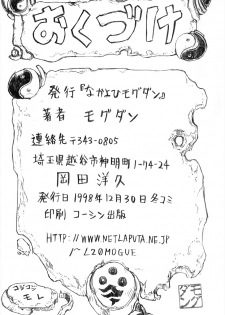 おくづけ
発行『なかよひモグダン』
著者 モグダン
連絡先 〒343-0805
埼玉県越谷市神明町1-74-24
岡田洋久
発行日1998年12月30日冬コミ
印刷 コーシン出版
HTTP://WWW.NETLAPUTA.NE.JP
/~L20MOGUE
モグダン